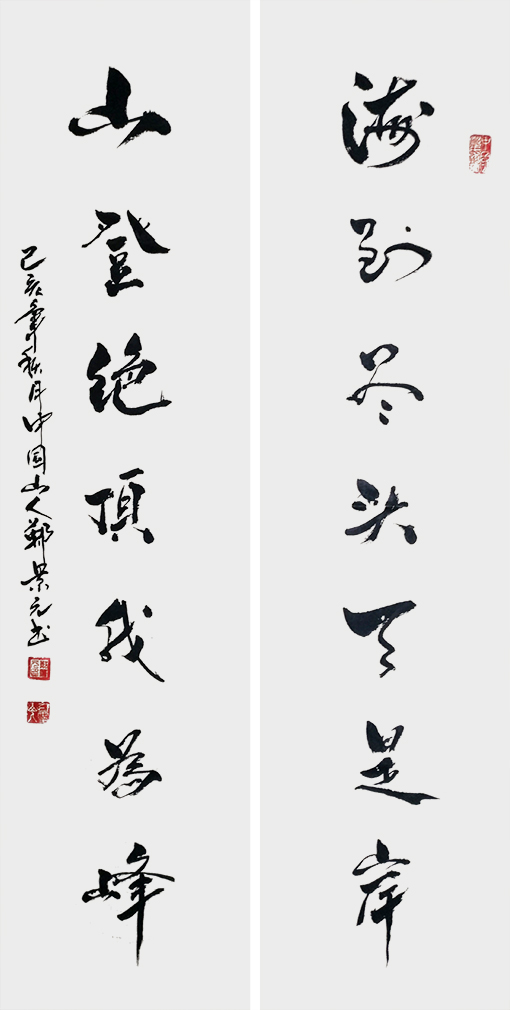 海到尽头天是岸
山登绝頂我为峰
己亥年秋月中国山人郑景元书